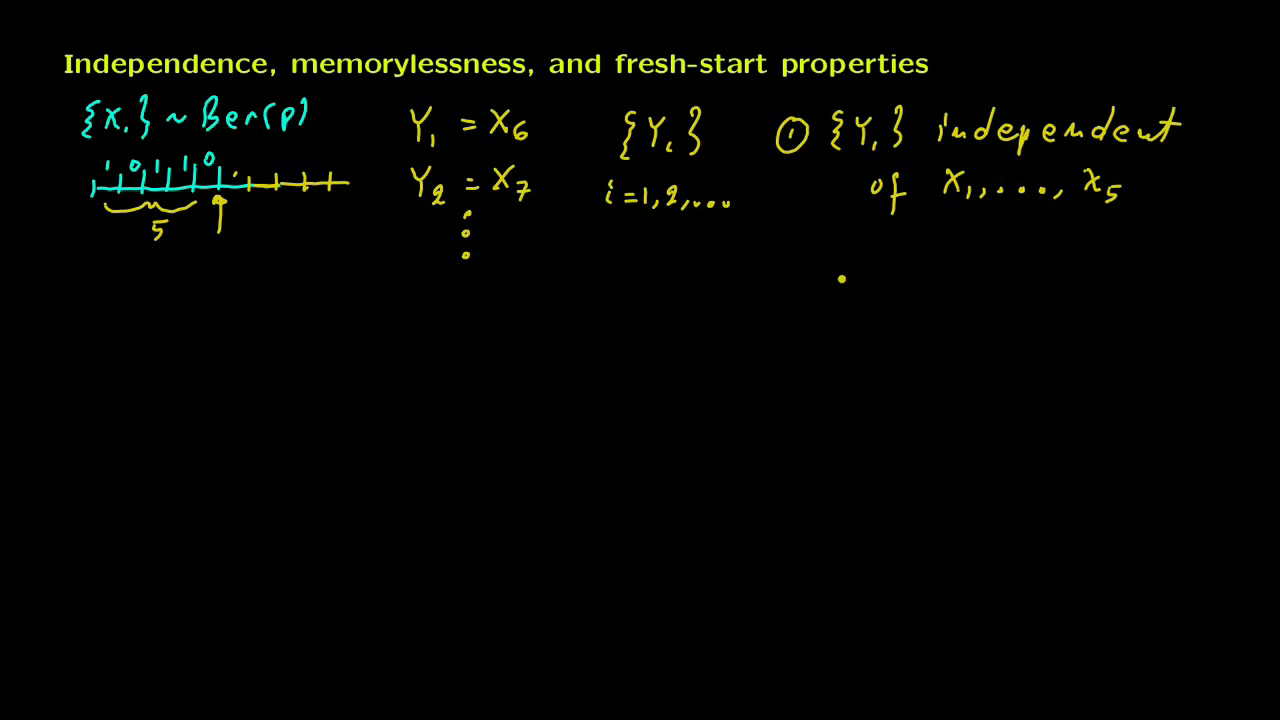 Independence, memorylessness, and fresh-start properties
{Xᵢ} ~ Ber(p)
1 0 1 1 0
5
Y₁ = X₆
Y₂ = X₇
⋮
{Yᵢ}
i = 1, 2, ...
① {Yᵢ} independent
of X₁, ..., X₅